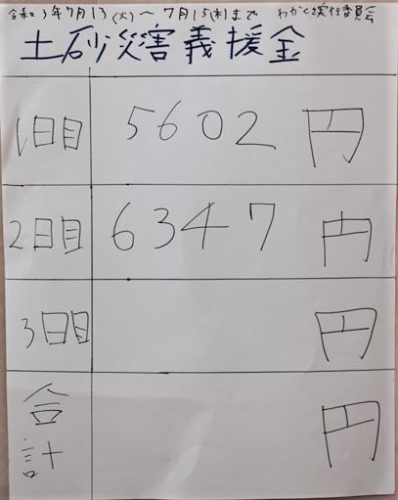 令和3年7月13(火)～7月15(木)まで わかく実行委員会
土砂災害義援金
1日目 5602 円
2日目 6347 円
3日目 円
合計 円